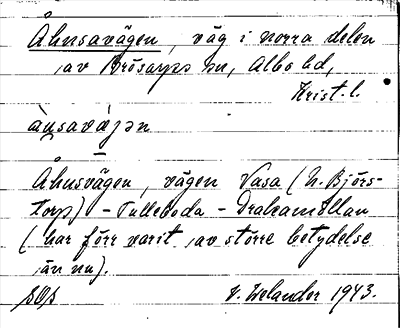 Åhusavägen, väg i norra delen
av Brösarps sn, Albo hd,
Krist. l.
àu̥savä̀jən
Åhusvägen, vägen Vasa (N. Björs-
torp) - Tulleboda - Drakamöllan
(har förr varit av större betydelse
än nu).
SOs V. Welander 1943.